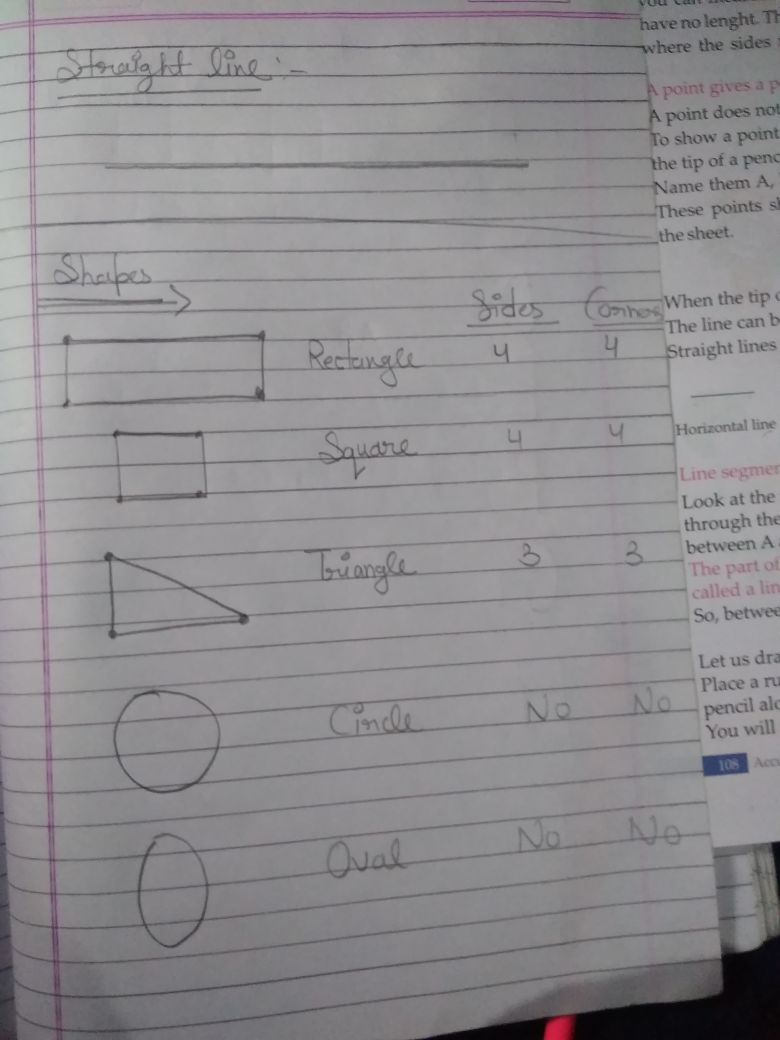 Straight line :-
Shapes
Sides Corners
Rectangle 4 4
Square 4 4
Triangle 3 3
Circle No No
Oval No No
have no lenght.
where the sides
A point gives a
A point does not
To show a point
the tip of a
Name them A,
These points
the sheet.
When the tip
The line can
Straight lines
Horizontal line
Line
Look at the
through the
between A
The part of
called a
So,
Let us
Place a
pencil
You will
108